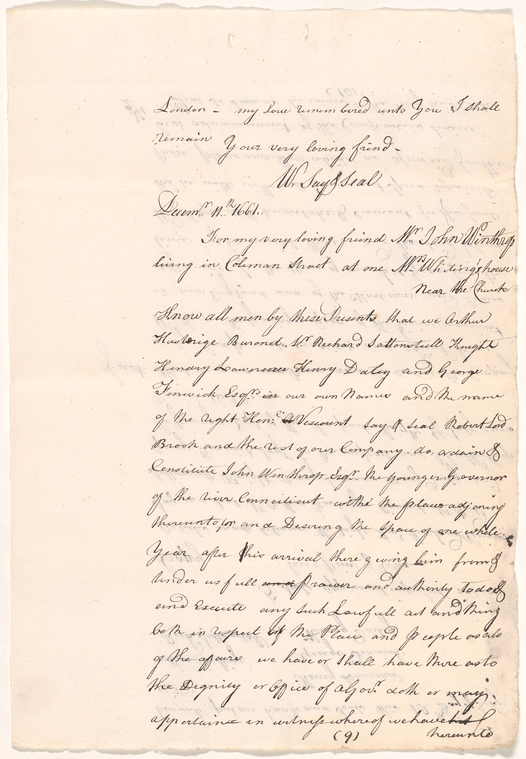 London – my love remembered unto You I shall
remain Your very loving frind –
W. Say & Seal
Decemr. 11.th 1661.
For my very loving friend Mr. John Winthrop
living in Coliman Street at one Mrs. Whitings house
Near the Church
Know all men by these Presents that we Arthur
Baronet, Sr. Richard Saltonstall Knight
Henery Lawrence Henry Daley and George
Fenwick Esqrs. in our own Names and the name
of the right Honle. Viscount Say & Seal Robert Lord
Brook and the rest of our Company. do, ordain &
Constitute John Winthrop Esqr. the younger Governor
of the river Conneticut with the places adjoining
thereunto for and Desiring the space of one whole
Year after his arrival there giving him from &
under us full and Power and authority to do &
and Execute any such Lawfull act and thing
both in respect of the Place and People as also
of the affairs we have or shall have there as to
the Dignity or Office of a Govr. doth or may.
appertaine in witness whereof we have
(9) hereunto